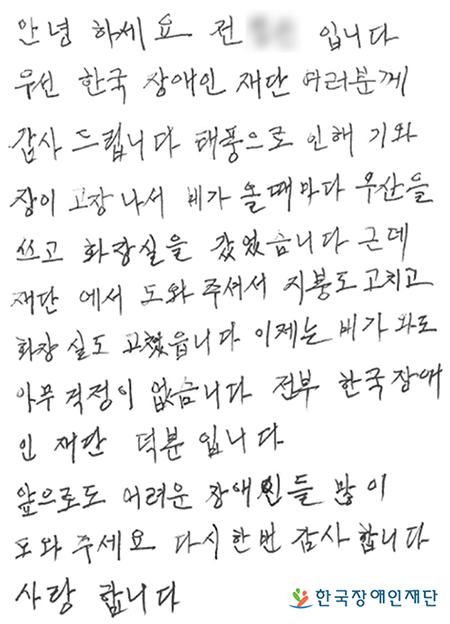 안녕 하세요 전 입니다
우선 한국 장애인 재단 여러분께
감사 드립니다 태풍으로 인해 기와
장이 고장 나서 비가 올때마다 우산을
쓰고 화장실을 갔었습니다 근데
재단 에서 도와 주셔서 지붕도 고치고
화장 실도 고쳤읍니다 이제는 비가 와도
아무 걱정이 없습니다 전부 한국장애
인 재단 덕분 입니다
앞으로도 어려운 장애인들 많이
도와 주세요 다시한번 감사합니다
사랑 합니다
한국장애인재단